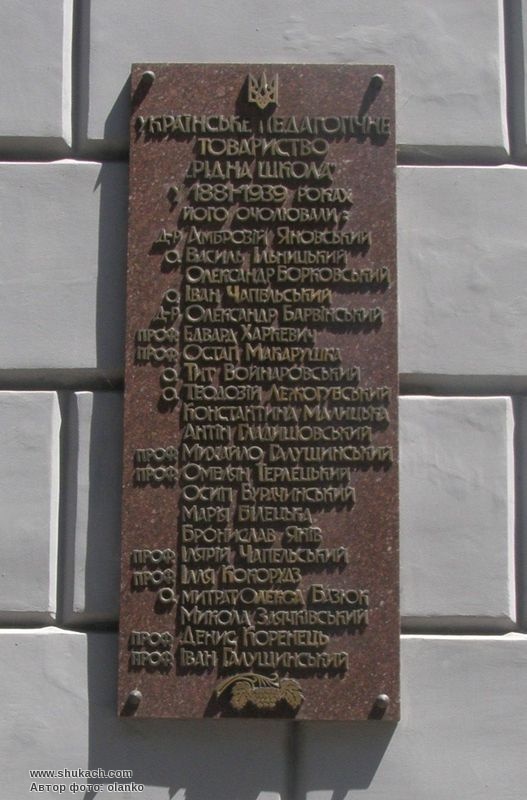 УКРАЇНСЬКЕ ПЕДАГОГІЧНЕ
ТОВАРИСТВО
„РІДНА ШКОЛА"
У 1881-1939 РОКАХ
ЙОГО ОЧОЛЮВАЛИ:
Д-Р АМБРОЗІЙ ЯНОВСЬКИЙ
О. ВАСИЛЬ ІЛЬНИЦЬКИЙ
ОЛЕКСАНДР БОРКОВСЬКИЙ
О. ІВАН ЧАПЕЛЬСЬКИЙ
Д-Р ОЛЕКСАНДР БАРВІНСЬКИЙ
ПРОФ. ЕДВАРД ХАРКЕВИЧ
ПРОФ. ОСТАП МАКАРУШКА
О. ТИТ ВОЙНАРОВСЬКИЙ
О. ТЕОДОЗІЙ ЛЕЖОГУБСЬКИЙ
КОНСТАНТИНА МАЛИЦЬКА
АНТІН ГЛАДИШОВСЬКИЙ
ПРОФ. МИХАЙЛО ГАЛУЩИНСЬКИЙ
ПРОФ. ОМЕЛЯН ТЕРЛЕЦЬКИЙ
ОСИП БУРАЧИНСЬКИЙ
МАРІЯ БІЛЕЦЬКА
БРОНИСЛАВ ЯНІВ
ПРОФ. ІЛЯРІЙ ЧАПЕЛЬСЬКИЙ
ПРОФ. ІЛЛЯ КОКОРУДЗ
О. МИТРАТ ОЛЕКСА БАЗЮК
МИКОЛА ЗАЯЧКІВСЬКИЙ
ПРОФ. ДЕНИС КОРЕНЕЦЬ
ПРОФ. ІВАН ГАЛУЩИНСЬКИЙ
www.shukach.com
Автор фото: olanko